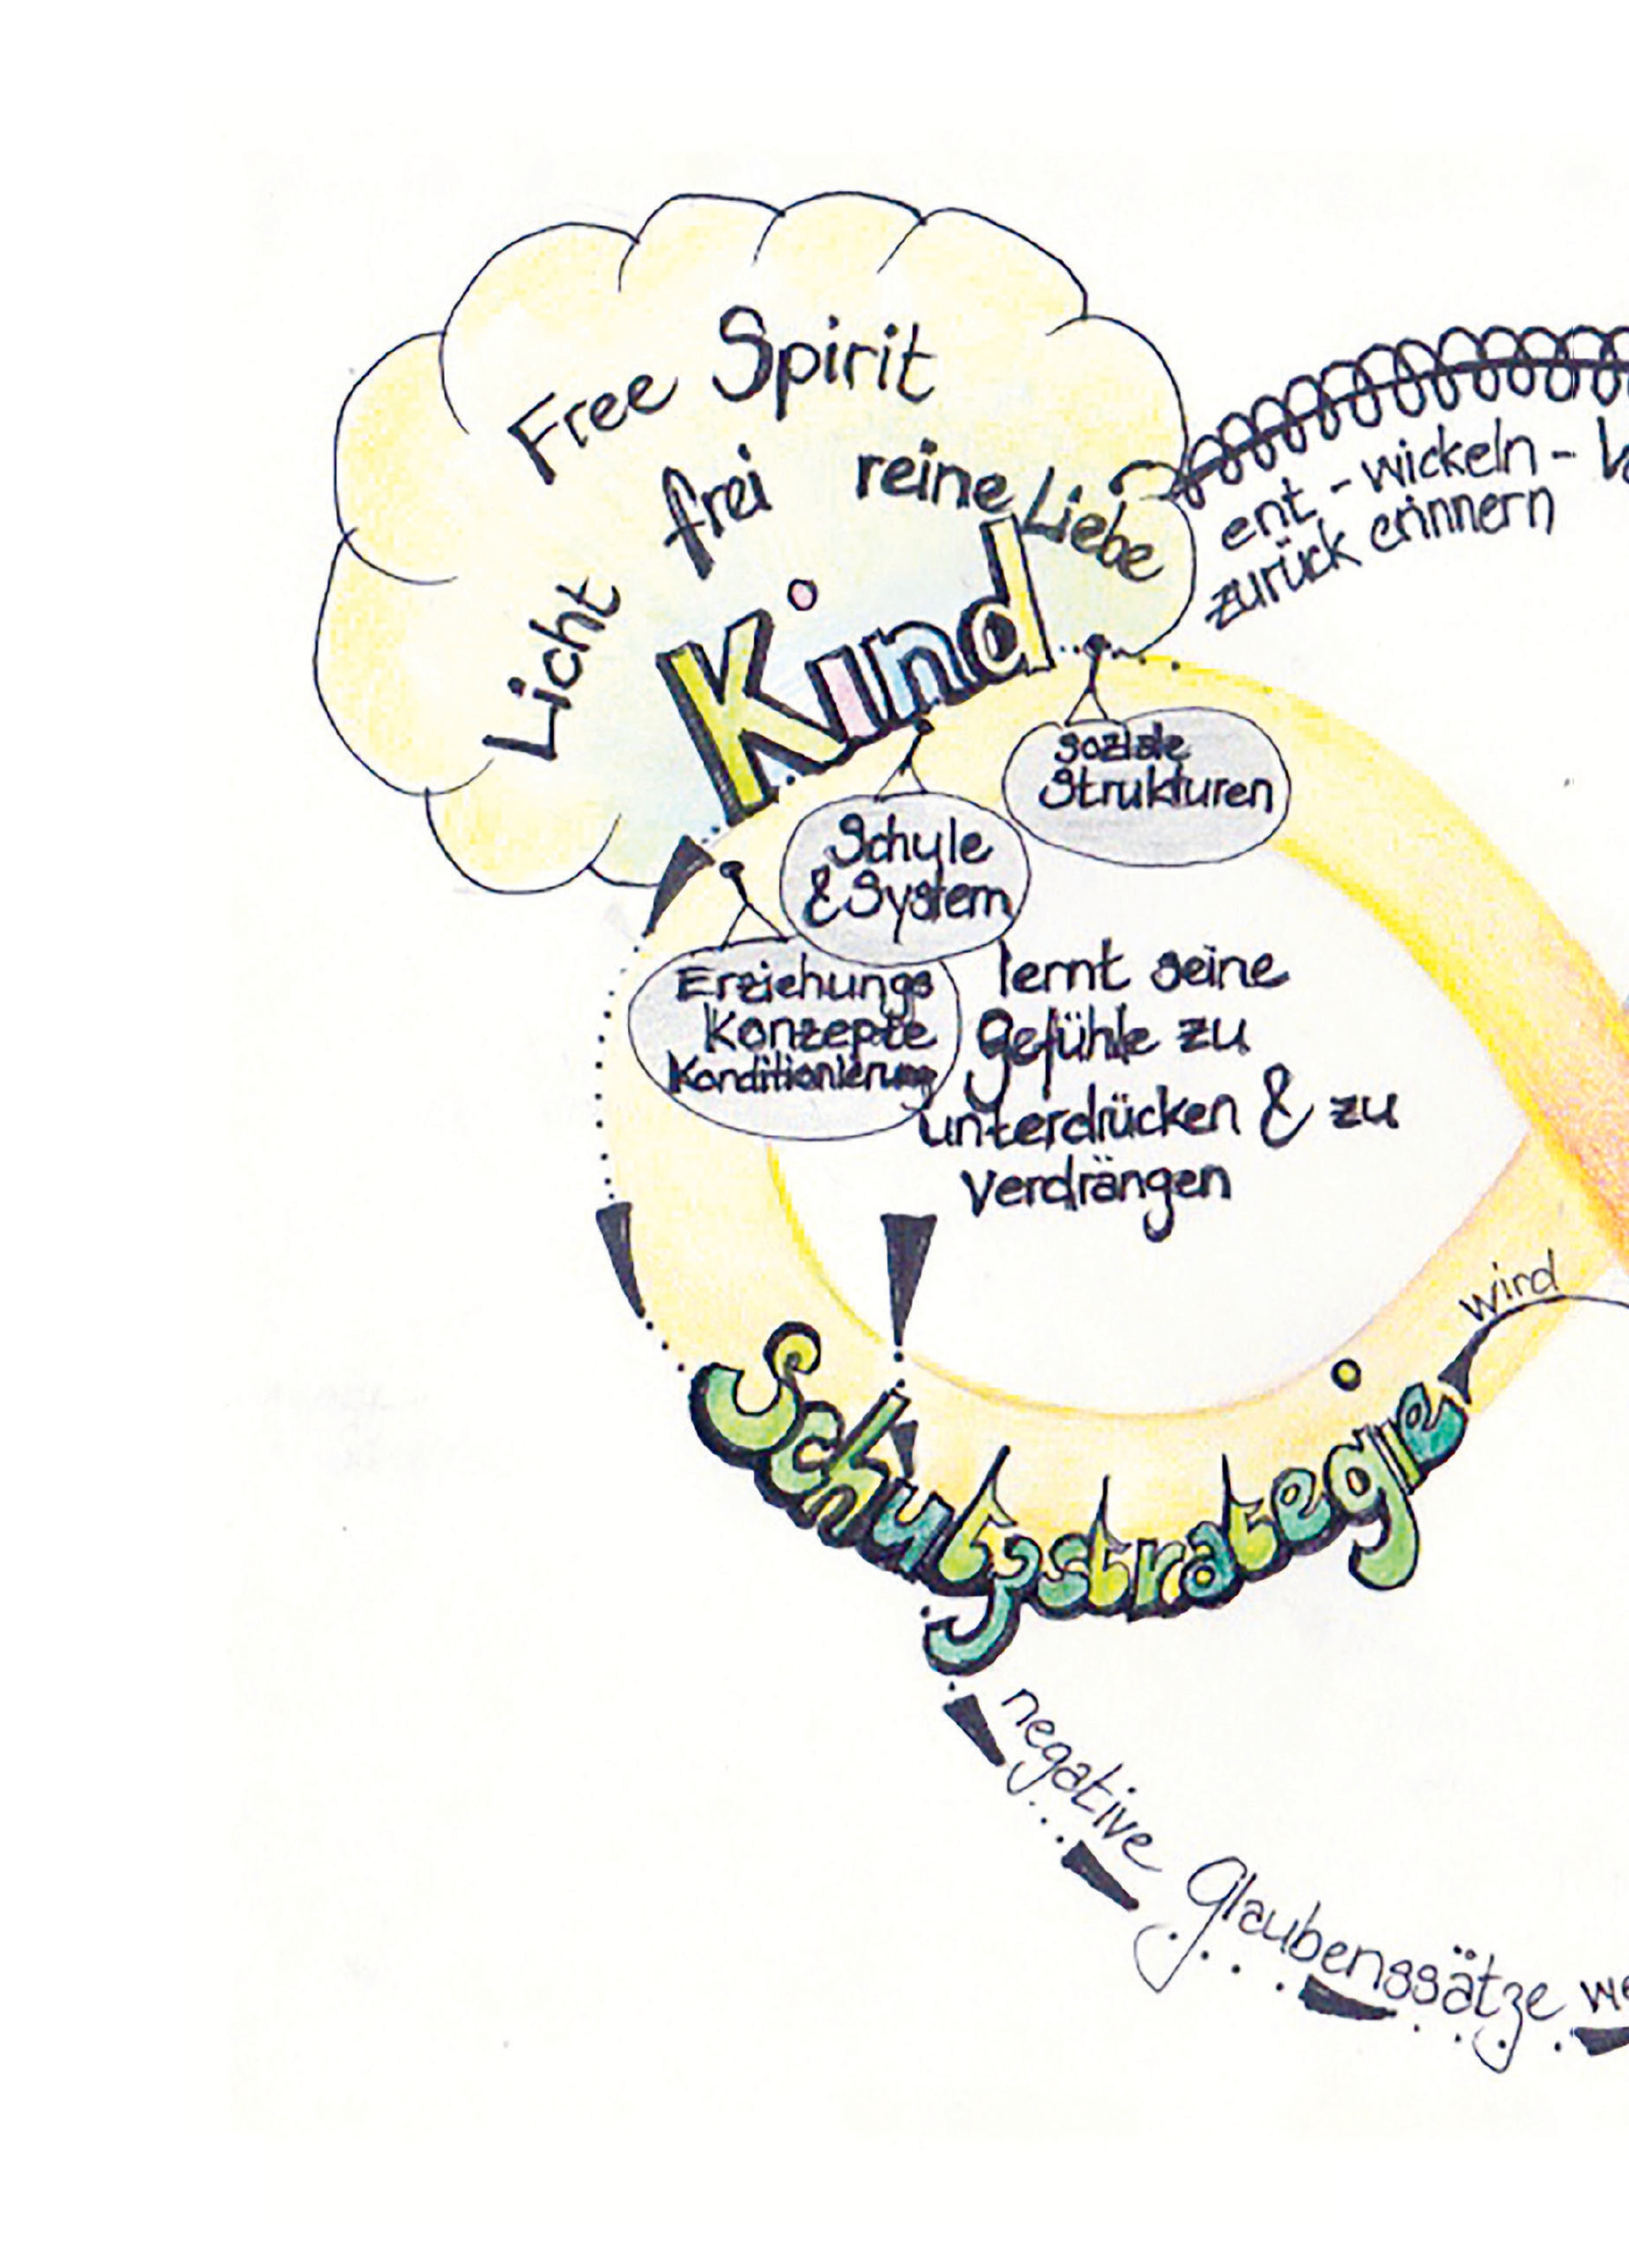 Free Spirit
Licht
frei
reine Liebe
Kind
ent - wickeln -
zurück erinnern
soziale
Strukturen
Schule
& System
Erziehungs
Konzepte
Konditionierung
lernt seine
Gefühle zu
unterdrücken & zu
Verdrängen
wird
Schutzstrategie
negative Glaubenssätze